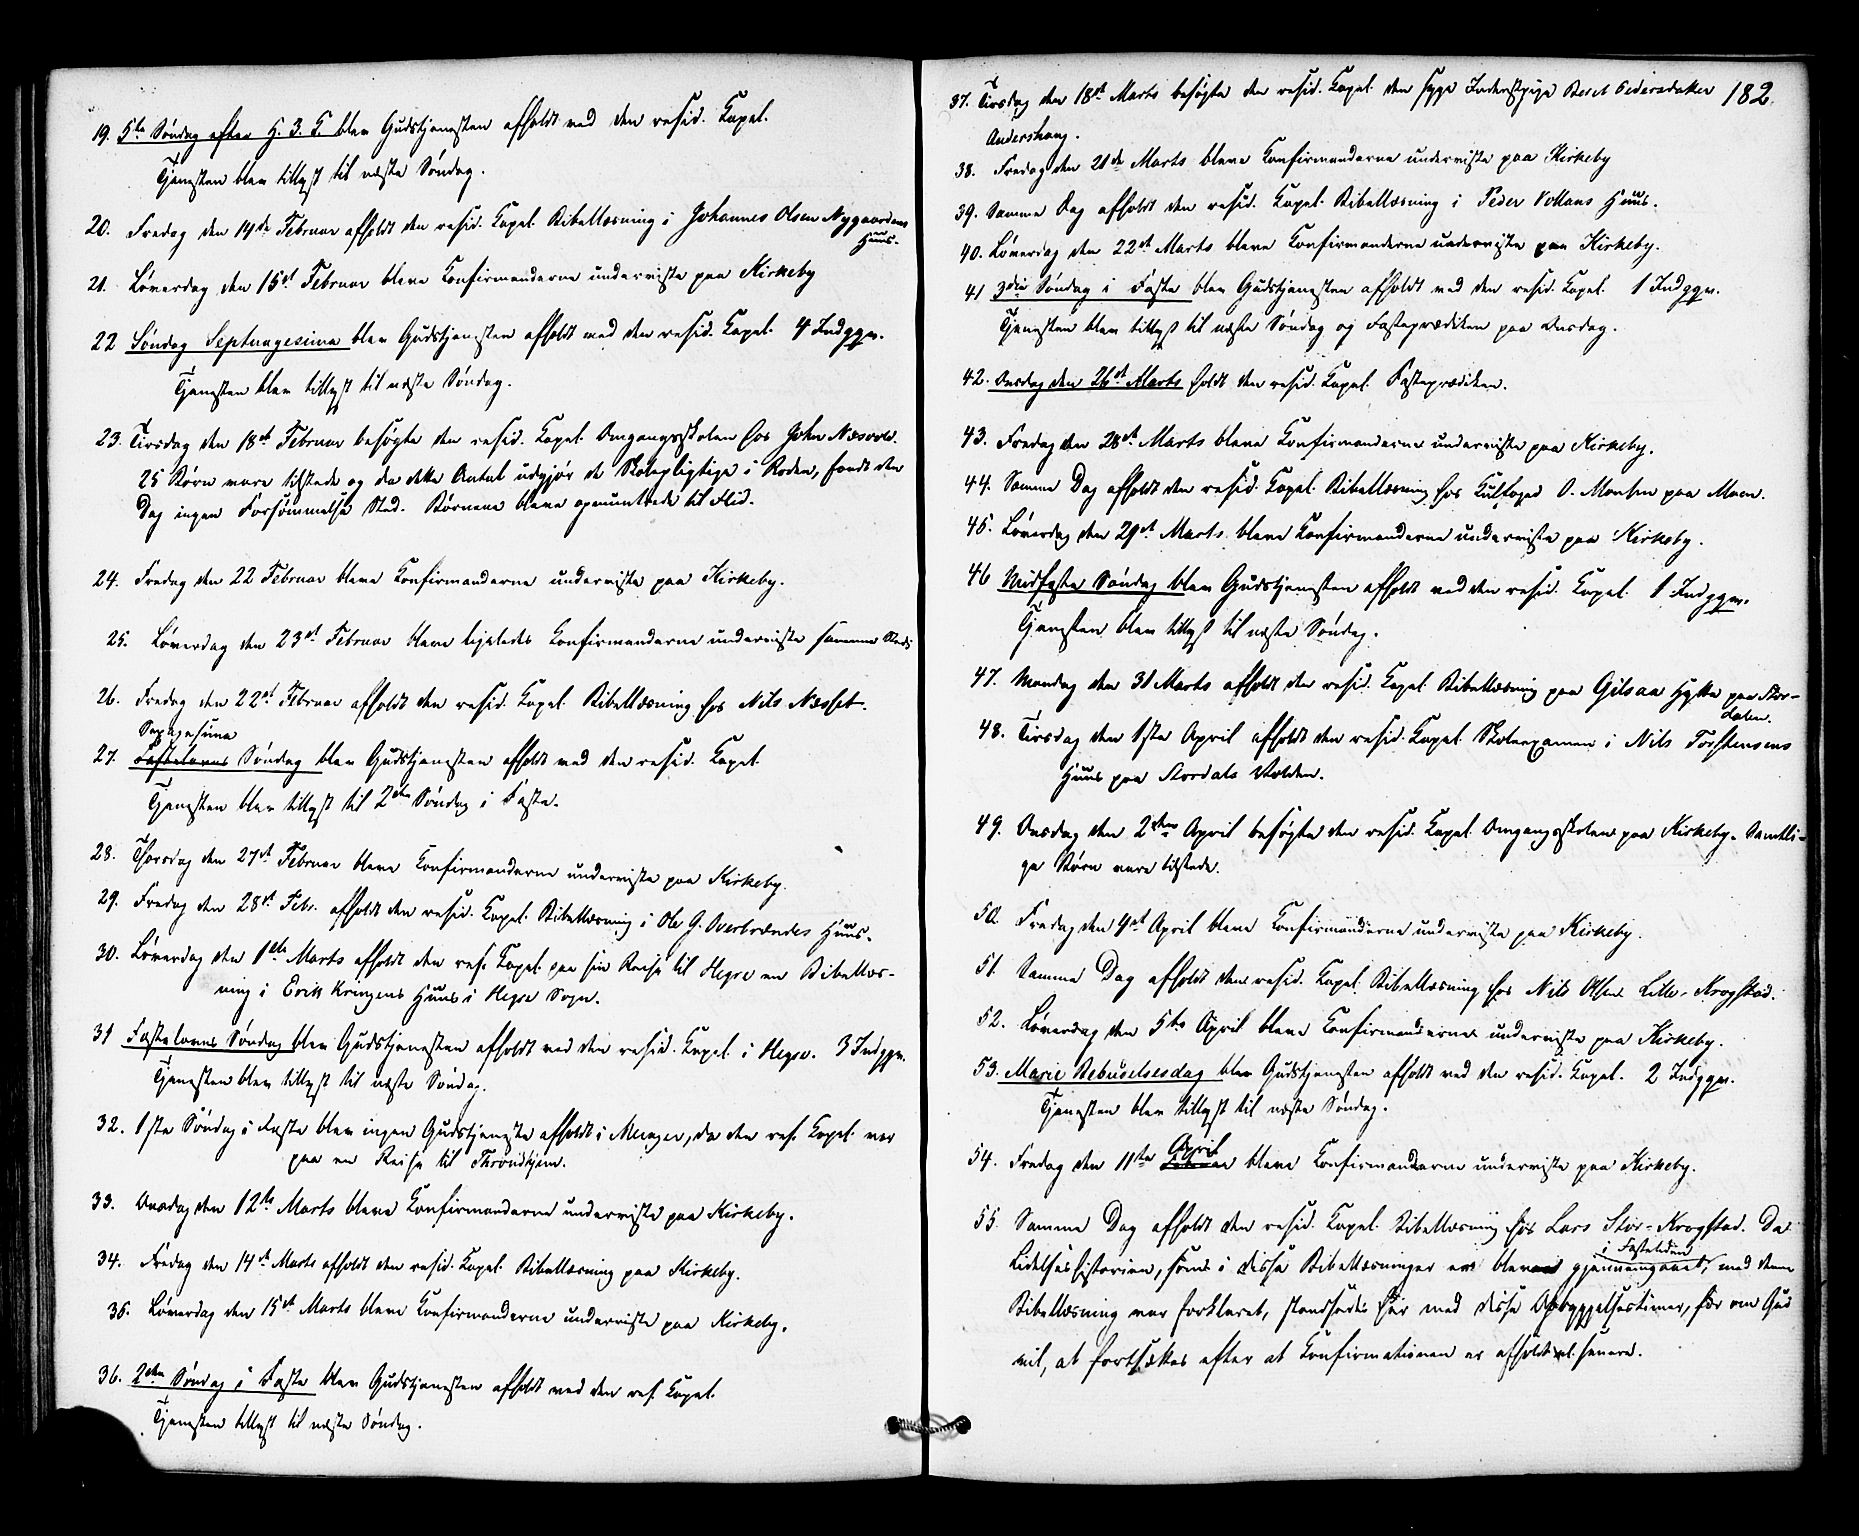 19. 5te Søndag efter H. 3. K. blev Gudstjenesten afholdt ved den resid. Capel.
Tjenesten blev tillyst til næste Søndag.
20. Fredag den 14de Februar afholdt den resid. Capel. Bibellæsning i Johannes Olsen Nygaardens
Huus.
21. Løverdag den 15de Februar bleve Confirmanderne underviste paa Kirkeby
22 Søndag Septuagesima blev Gudstjenesten afholdt ved den resid. Capel. 4 Indggm.
Tjenesten blev tillyst til næste Søndag.
23. Tirsdag den 18de Februar besøgte den resid. Capel. Omgangsskolen hos John Næsvold.
25 Børn vare tilstede og da dette Antal udgjør de Skolepligtige i Roden, fandt den
Dag ingen Forsømmelse Sted. Børnene bleve opmuntrede til Flid.
24. Fredag den 22 Februar bleve Confirmanderne underviste paa Kirkeby.
25. Løverdag den 23de Februar bleve ligeledes Confirmanderne underviste samme Sted.
26. Fredag den 22de Februar afholdt den resid. Capel. Bibellæsning hos Nils Næsset.
Sexagesima
27. Fastelavns Søndag blev Gudstjenesten afholdt ved den resid. Capel.
Tjenesten blev tillyst til 2den Søndag i Faste.
28. Thorsdag den 27de Februar bleve Confirmanderne underviste paa Kirkeby.
29. Fredag den 28de Febr. afholdt den resid. Capel. Bibellæsning i Ole G. Overbrendes Huus.
30. Løverdag den 1ste Marts afholdt den res. Capel. paa sin Reise til Hegre en Bibellæs-
ning i Erik Kringens Huus i Hegre Sogn.
31 Fastelavns Søndag blev Gudstjenesten afholdt ved den resid. Capel. i Hegre. 3 Indggm.
Tjenesten blev tillyst til næste Søndag.
32. 1ste Søndag i Faste blev ingen Gudstjeneste afholdt i Merager, da den res. Capel. var
paa en Reise til Throndhjem.
33. Onsdag den 12te Marts bleve Confirmanderne underviste paa Kirkeby.
34. Fredag den 14de Marts afholdt den resid. Capel. Bibellæsning paa Kirkeby.
35. Løverdag den 15de Marts bleve Confirmanderne underviste paa Kirkeby.
36. 2den Søndag i Faste blev Gudstjenesten afholdt ved den res. Capel.
Tjenesten tillyst til næste Søndag.
182.
37. Tirsdag den 18de Marts besøgte den resid. Capel. den syge Inderstpige Beret Pedersdatter
Andershaug.
38. Fredag den 21de Marts bleve Confirmanderne underviste paa Kirkeby
39. Samme Dag afholdt den resid. Capel. Bibellæsning i Peder Vollans Huus.
40. Løverdag den 22de Marts bleve Confirmanderne underviste paa Kirkeby.
41 3die Søndag i Faste blev Gudstjenesten afholdt ved den resid. Capel. 1 Indggm.
Tjenesten blev tillyst til næste Søndag og Fasteprædiken paa Onsdag.
42. Onsdag den 26de Marts holdt den resid. Capel. Fasteprædiken.
43. Fredag den 28de Marts bleve Confirmanderne underviste paa Kirkeby.
44. Samme Dag afholdt den resid. Capel. Bibellæsning hos Kulfoged O. Monsen paa Moen.
45. Løverdag den 29de Marts bleve Confirmanderne underviste paa Kirkeby.
46 Midfaste Søndag blev Gudstjenesten afholdt ved den resid. Capel. 1 Indggm.
Tjenesten blev tillyst til næste Søndag.
47. Mandag den 31 Marts afholdt den resid. Capel. Bibellæsning paa Gilsaa Hytte paa Stor-
dalen.
48. Tirsdag den 1ste April afholdt den resid. Capel. Skoleexamen i Nils Torstensens
Huus paa Stordals Volden.
49. Onsdag den 2den April besøgte den resid. Capel. Omgangsskolen paa Kirkeby. Samtli-
ge Børn vare tilstede.
50. Fredag den 4de April bleve Confirmanderne underviste paa Kirkeby.
51. Samme Dag afholdt den resid. Capel. Bibellæsning hos Nils Olsen Lille-Krogstad.
52. Løverdag den 5te April bleve Confirmanderne underviste paa Kirkeby.
53. Marie Bebudelsesdag blev Gudstjenesten afholdt ved den resid. Capel. 2 Indggm.
Tjenesten blev tillyst til næste Søndag.
April
54. Fredag den 11te bleve Confirmanderne underviste paa Kirkeby.
55. Samme Dag afholdt den resid. Capel. Bibellæsning hos Lars Stor-Krogstad. Da
i Fastetiden
Lidelseshistorien, som i disse Bibellæsninger er bleven gjennemgaaet, med denne
Bibellæsning var forklaret, standsedes her med disse Opbyggelsestimer, for om Gud
vil, at fortsættes efter at Confirmationen er afholdt el. senere.